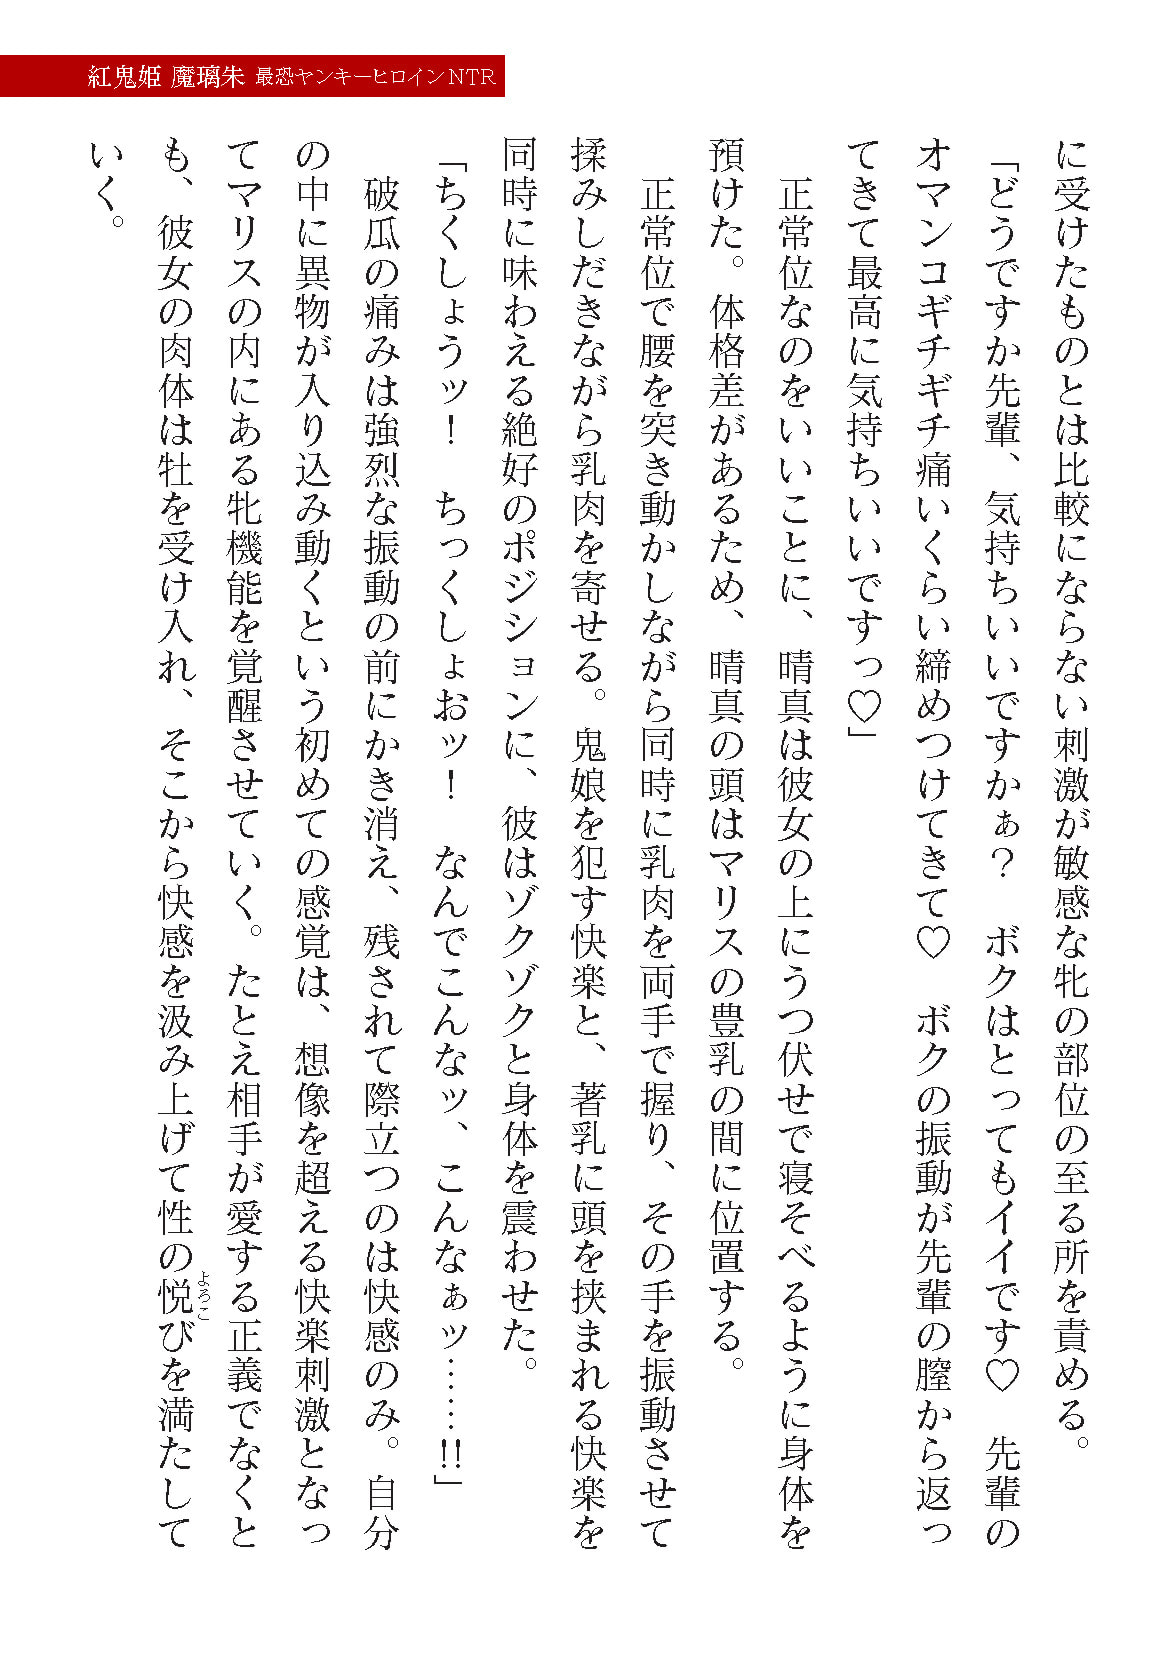 紅鬼姫 魔璃朱 最恐ヤンキーヒロインNTR
に受けたものとは比較にならない刺激が敏感な牝の部位の至る所を責める。
「どうですか先輩、気持ちいいですかぁ？　ボクはとってもイイです♡　先輩の
オマンコギチギチ痛いくらい締めつけてきて♡　ボクの振動が先輩の膣から返っ
てきて最高に気持ちいいですっ♡」
　正常位なのをいいことに、晴真は彼女の上にうつ伏せで寝そべるように身体を
預けた。体格差があるため、晴真の頭はマリスの豊乳の間に位置する。
　正常位で腰を突き動かしながら同時に乳肉を両手で握り、その手を振動させて
揉みしだきながら乳肉を寄せる。鬼娘を犯す快楽と、著乳に頭を挟まれる快楽を
同時に味わえる絶好のポジションに、彼はゾクゾクと身体を震わせた。
「ちくしょうッ！　ちっくしょおッ！　なんでこんなッ、こんなぁッ……!!」
　破瓜の痛みは強烈な振動の前にかき消え、残されて際立つのは快感のみ。自分
の中に異物が入り込み動くという初めての感覚は、想像を超える快楽刺激となっ
てマリスの内にある牝機能を覚醒させていく。たとえ相手が愛する正義でなくと
も、彼女の肉体は牡を受け入れ、そこから快感を汲み上げて性の悦びを満たして
よろこ
いく。